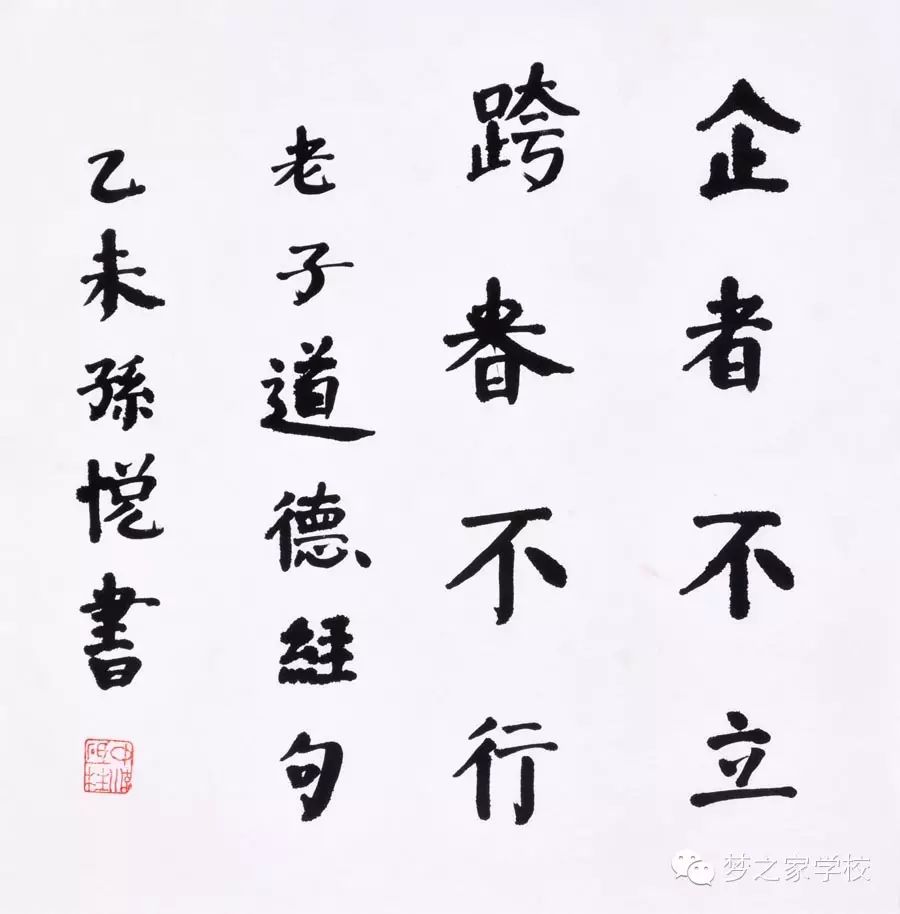 企者不立
跨者不行
老子道德經句
乙未孫悅書
梦之家学校